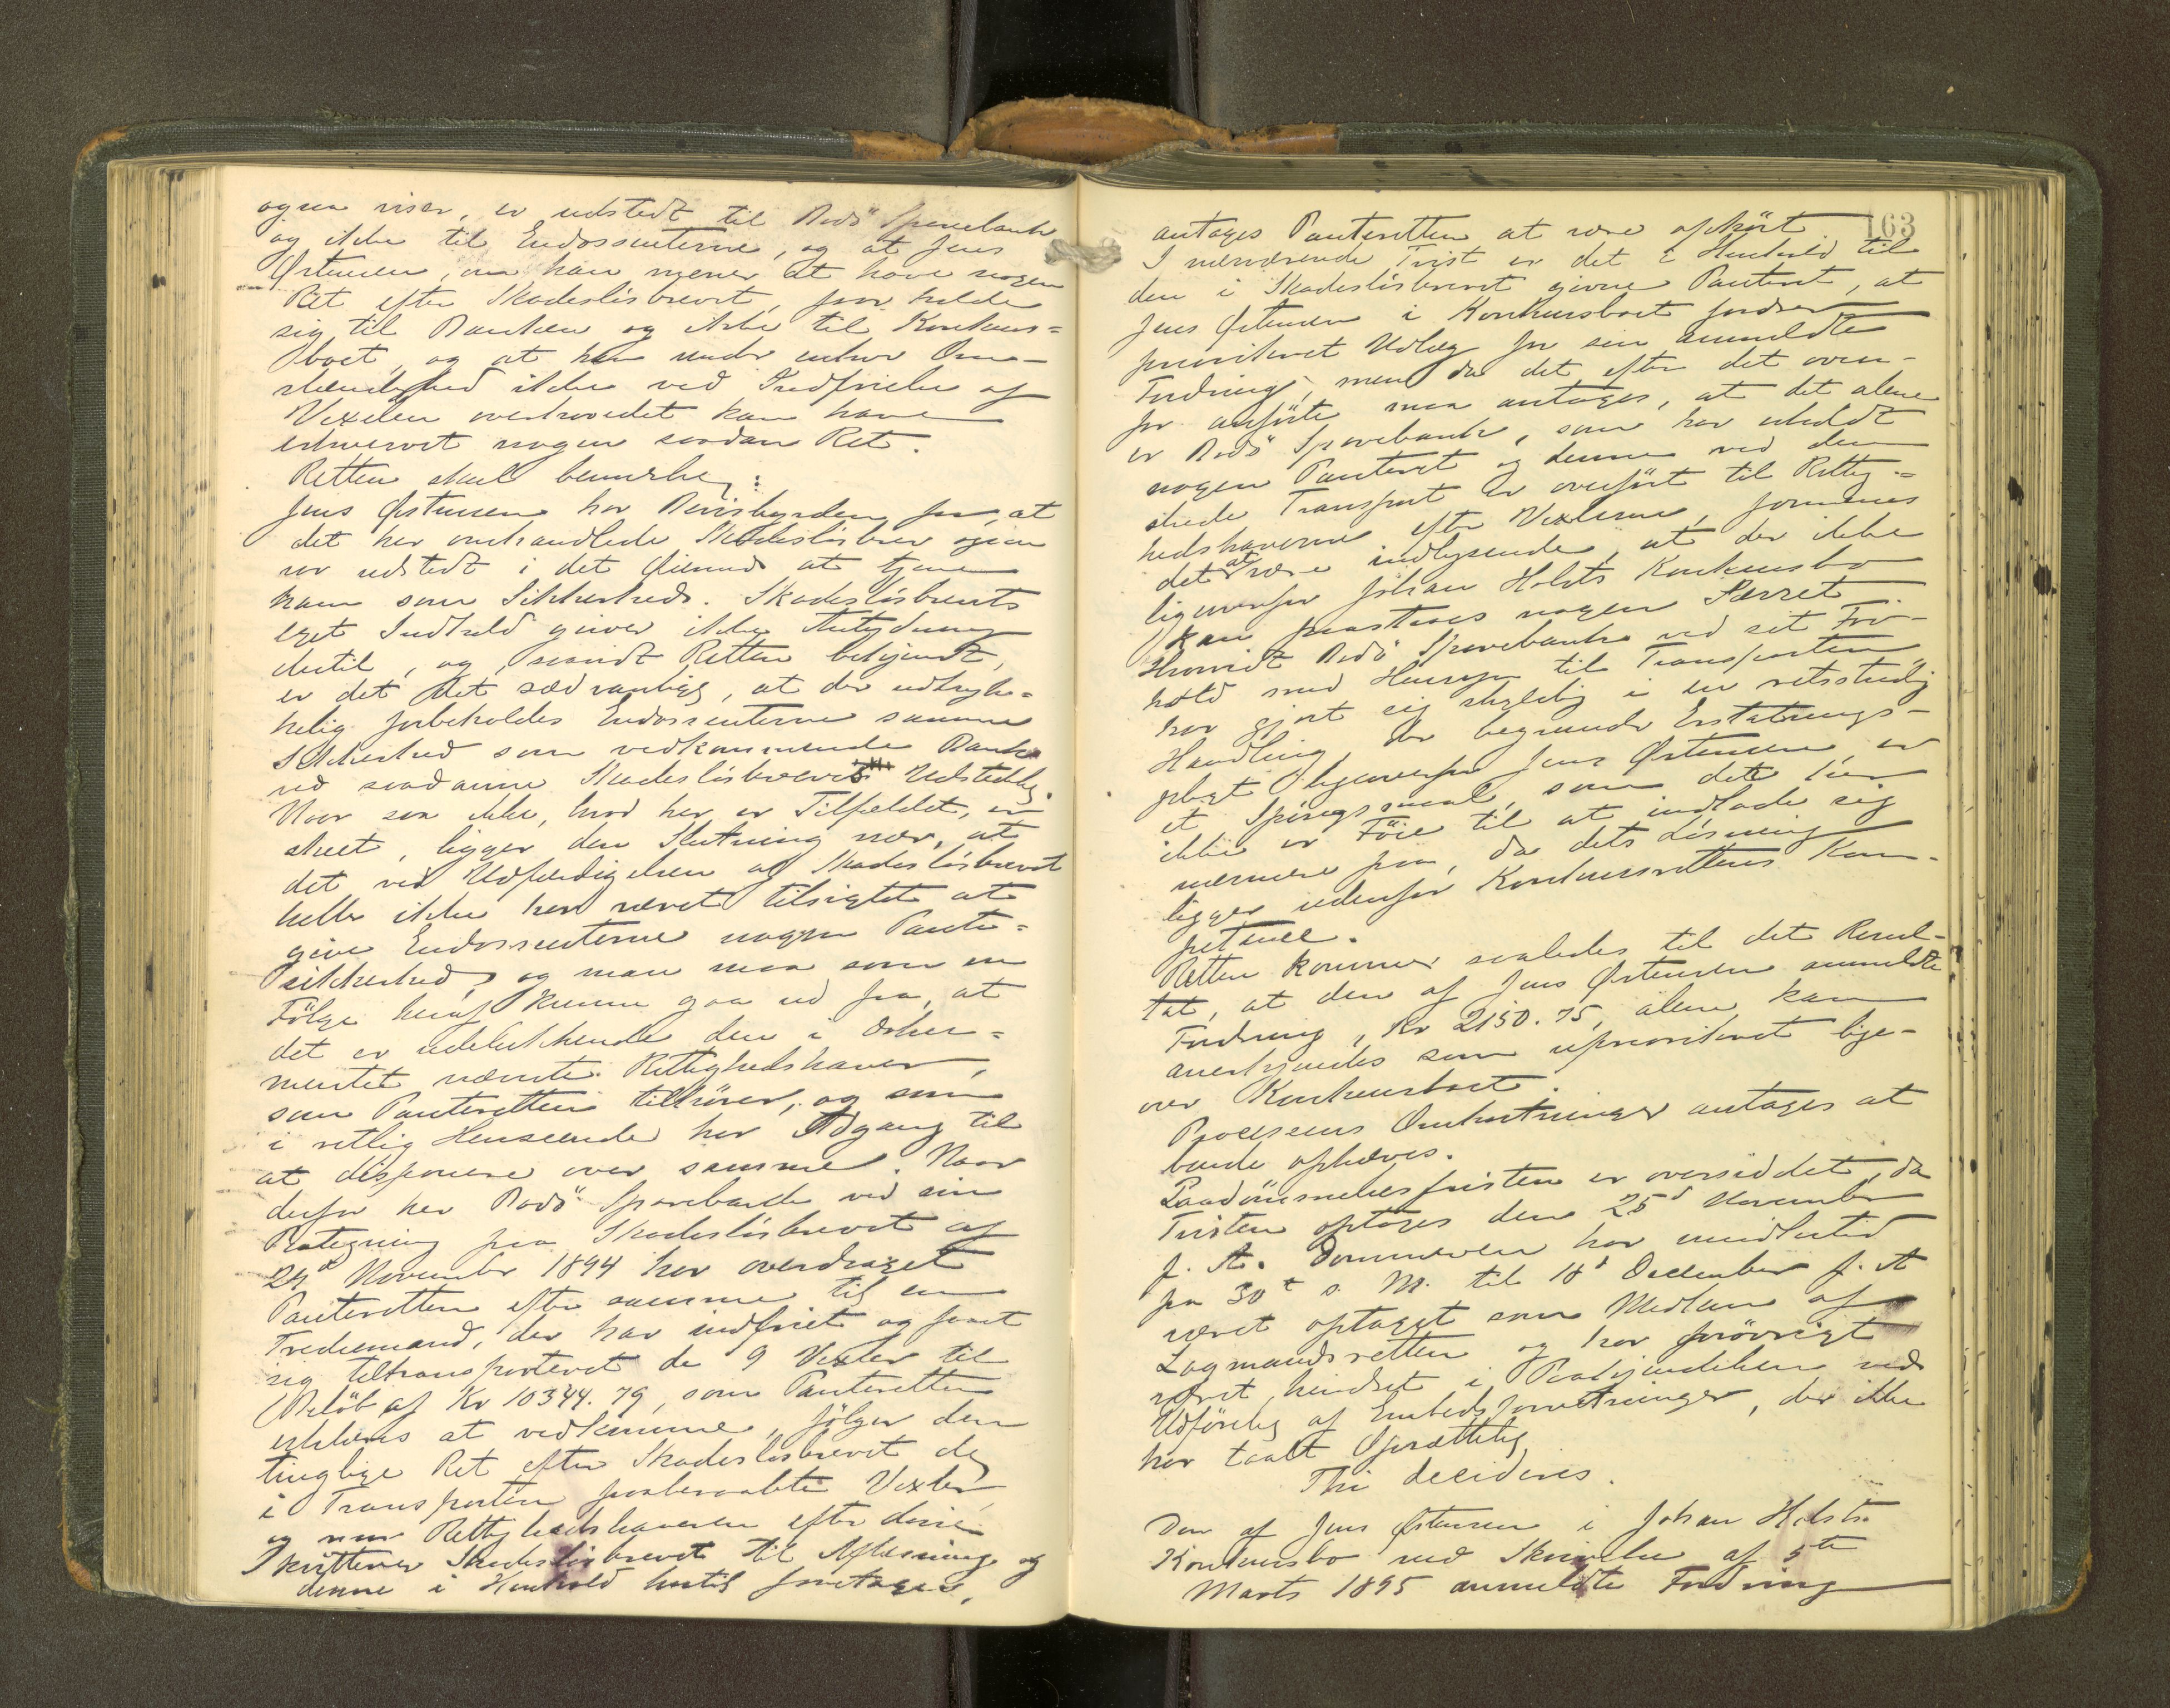 ogsaa viser, er udstedt til Bodö Sparebank
og ikke til Endossenterne, og at Jens
Østensen, om han mener at have nogen
Ret efter Skadeslösbrevet, faar holde
sig til Banken og ikke til Konkurs=
boet, og at han under enhver Om-
stændighed ikke ved Indfrielse af
Vexelen overhovedet kan have
erhvervet nogen saadan Ret.
Retten skal bemærke:
Jens Østensen har Bevisbyrden for, at
det her omhandlede Skadeslösbrev ogsaa
var udstedt i det Øiemed at tjene
ham som Sikkerhed. Skadeslösbrevets
eget Indhold giver ikke Antydning
dertil, og, saavidt Retten bekjendt,
er det det sædvanlige, at der udtryk=
kelig forbeholdes Endossenterne samme
Sikkerhed som vedkommende Bank
ved saadanne Skadeslösbreves Udstedelse.
Naar saa ikke, hvad her er Tilfældet, er
skeet, ligger den Slutning nær, at
det ved Udfærdigelsen af Skadeslösbrevet
heller ikke har været tilsigtet at
give Endossenterne nogen Pante=
sikkerhed, og man maa som en
Fölge heraf kunne gaa ud fra, at
det er udelukkende den i Doku=
mentet nævnte Rettighedshaver,
som Panteretten tilhörer, og som
i retlig Henseende har Adgang til
at disponere over samme. Naar
derfor her Bodö Sparebank ved sin
Paategning paa Skadeslösbrevet af
24d November 1894 har overdraget
Panteretten efter samme til en
Trediemand, der har indfriet og faaet
sig tiltransporteret de 9 Vexler til
Belöb af Kr 10344.79, som Panteretten
erklæres at vedkomme, fölger den
tinglige Ret efter Skadeslösbrevet de
i Transporten paaberaabte Vexler,
og naar Rettighedshaveren efter disse
kvitterer Skadeslösbrevet til Aflæsning og
denne i Henhold hertil foretages,
163
antages Panteretten at være ophört.
I nærværende Tvist er det i Henhold til
den i Skadeslösbrevet givne Panteret, at
Jens Østensen i Konkursboet fordrer
prioriteret Udlæg for sin anmeldte
Fordring; men da det efter det oven-
for anförte maa antages, at det alene
er Bodö Sparebank, som har erholdt
nogen Panteret og denne ved den
skede Transport er overfört til Rettig=
hedshaverne efter Vexlerne, formenes
det at være indlysende, at der ikke
ligeoverfor Johan Holsts Konkursbo
kan paastaaes nogen Særret.
Hvorvidt Bodö Sparebank ved sit For-
hold med Hensyn til Transporten
har gjort sig skyldig i en retsstridig
Handling, der begrunder Erstatnings-
pligt ligeoverfor Jens Østensen, er
et Spörgsmaal, som det her
ikke er Föie til at indlade sig
nærmere paa, da dets Lösning
ligger udenfor Konkursrettens Kom-
petence.
Retten kommer saaledes til det Resul-
tat, at den af Jens Østensen anmeldte
Fordring, Kr 2150.75, alene kan
anerkjendes som uprioriteret lige-
over Konkursboet.
Processens Omkostninger antages at
burde ophæves.
Paadömmelsesfristen er oversiddet, da
Tvisten optoges den 25d November
f. A. Dommeren har imidlertid
fra 30t s. M. til 18d December f. A
været optaget som Medlem af
Lagmandsretten og har forövrigt
været hindret i Paakjendelsen ved
Udförelse af Embedsforretninger, der ikke
har taalt Opsættelse.
Thi decideres.
Den af Jens Østensen i Johan Holsts
Konkursbo ved Skrivelse af 5te
Marts 1895 anmeldte Fordring